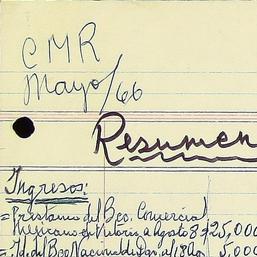 CMR
Mayo/66
Resumen
Ingresos:
= Préstamo del Bco. Comercial
Mexicano en Victoria, Agosto 8 = $25,000
= Id. del Bco Nacional de 18 Ago 5,000